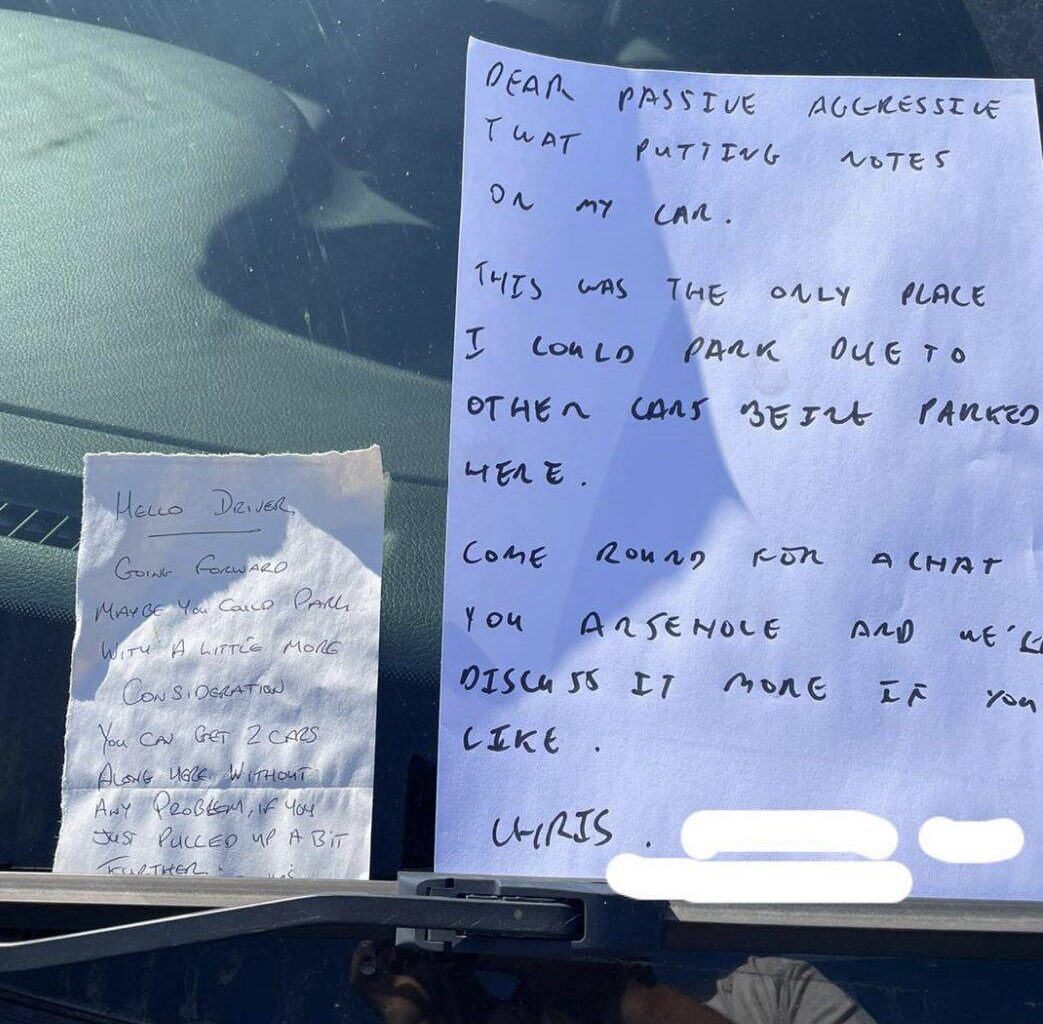 HELLO DRIVER,
GOING FORWARD
MAYBE YOU COULD PARK
WITH A LITTLE MORE
CONSIDERATION
YOU CAN GET 2 CARS
ALONG HERE WITHOUT
ANY PROBLEM, IF YOU
JUST PULLED UP A BIT
FURTHER.
DEAR PASSIVE AGGRESSIVE
TWAT PUTTING NOTES
ON MY CAR.
THIS WAS THE ONLY PLACE
I COULD PARK DUE TO
OTHER CARS BEING PARKED
HERE.
COME ROUND FOR A CHAT
YOU ARSEHOLE AND WE'LL
DISCUSS IT MORE IF YOU
LIKE.
CHRIS.